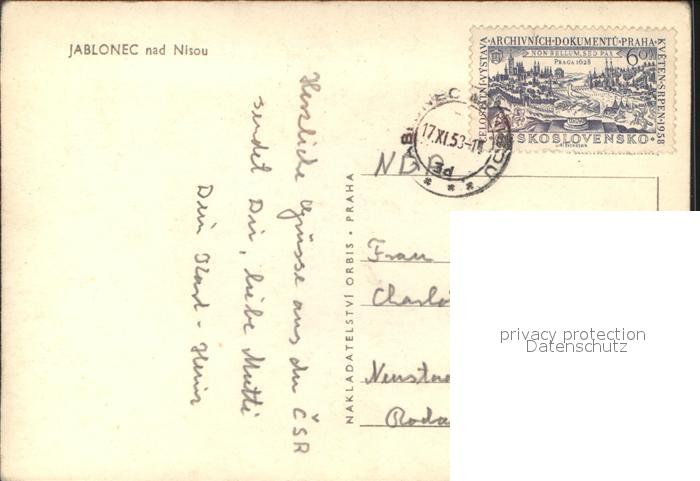 JABLONEC nad Nisou
CELOSTÁTNÍ·VÝSTAVA·ARCHIVNÍCH·DOKUMENTŮ·PRAHA·KVĚTEN-SRPEN·1958
NON BELLUM, SED PAX
PRAGA 1628
60
ČESKOSLOVENSKO
17.XI.58-1
Herzliche Grüsse aus der ČSR
sendet Dir, liebe Mutti
Dein Karl-Heinz
NAKLADATELSTVÍ ORBIS · PRAHA
Frau
Charlo
Neusta
Roda
privacy protection
Datenschutz